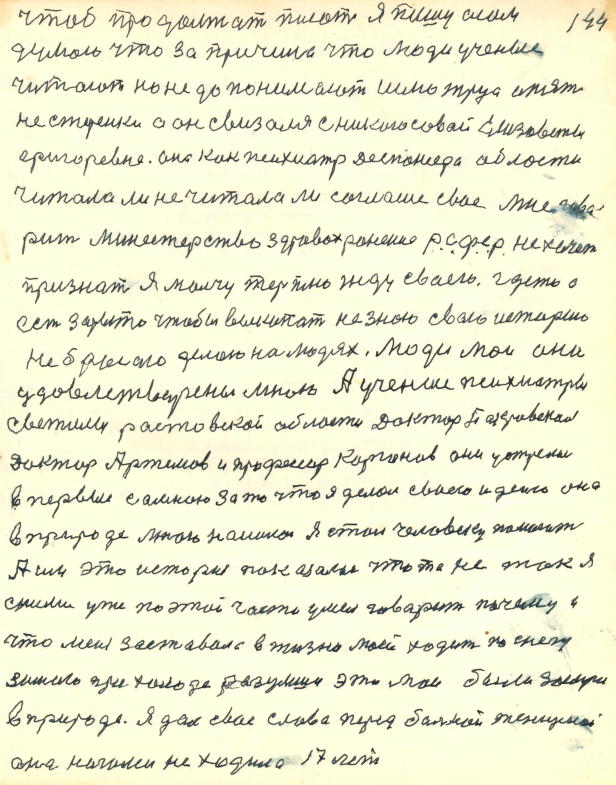 144
чтоб продолжат писат Я пишу слом
думаю что за причина что люди ученые
читают но не допонимают
не стренки а он свизался с никогосовой Елизоветы
григоревне. она как психиатр диспонседа области
читала ли не читала ли согласие свое мне гова-
рит минестерство здравохронение Р.С.Ф.С.Р. не хочет
признат Я молчу терплю жду своего. где то о
ест зарыто чтобы выкипат не знаю свою историю
не бросаю делаю на людях. Люди мои они
удовлетворены мною А ученые психиатры
светилы растовской области Доктор
Доктор Артемов и профессор Корганов они устрели
впервые самною за то что я делал своею идею она
в природе мною нашлас Я стал человеку помогат
А им это история показалас что то не так я
сними уже по этой части умел говорит почему и
что меня заставило в жизни моей ходит по снегу
зимою при холоде разумши это мои были
в природе. Я дал свое слова перед больной женщиной
она ногами не ходила 17 лет